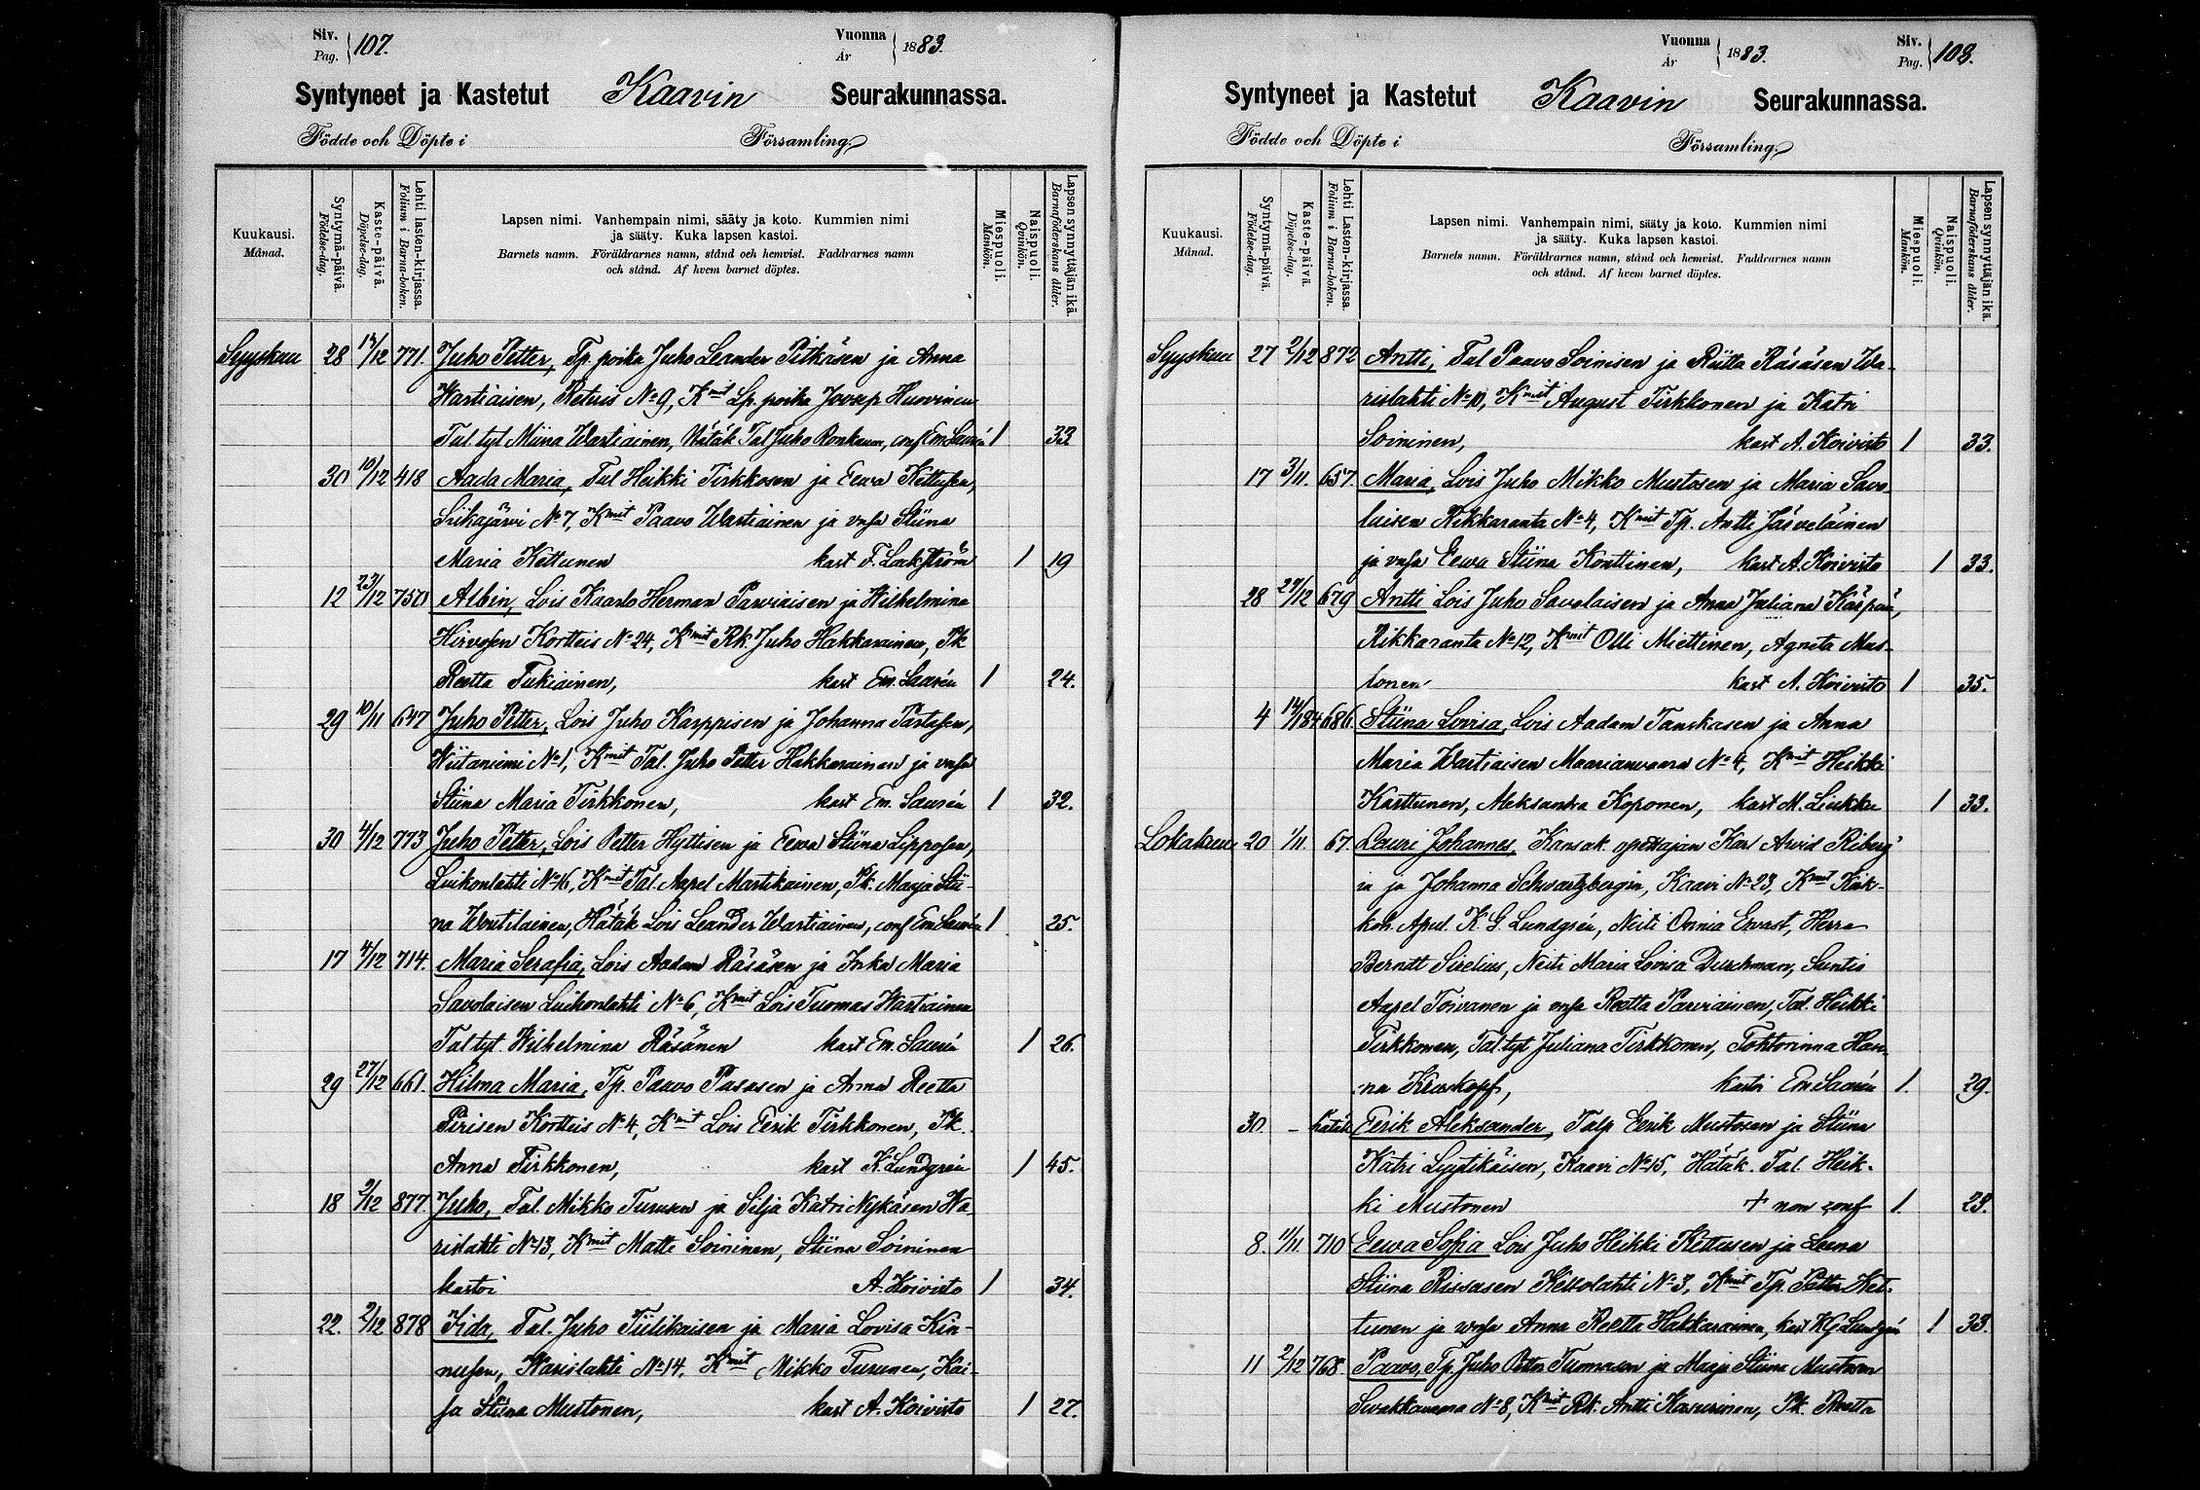 Siv. Pag. 107. Vuonna År 1883.
Syntyneet ja Kastetut Kaavin Seurakunnassa.
Födde och Döpte i Församling.
Kuukausi. Månad.
Syntymä-päivä. Födelse-dag.
Kaste-päivä. Döpelse-dag.
Lehti lasten-kirjassa. Folium i Barna-boken.
Lapsen nimi. Vanhempain nimi, sääty ja koto. Kummien nimi
ja sääty. Kuka lapsen kastoi.
Barnets namn. Föräldrarnes namn, stånd och hemvist. Faddrarnes namn
och stånd. Af hvem barnet döptes.
Miespuoli. Mankön.
Naispuoli. Qvinkön.
Lapsen synnyttäjän ikä. Barnaföderskans ålder.
Syyskuu 28 771. Juho Petter, Tp. poika Juho Leander Pitkäsen ja Anna
Wartiaisen, Retuis No 9, Kmit Lp. poika Huovinen
Tal. tyt Miina Wartiainen, Hätäk Tal Juho Ronkanen, conf Em. Saurén 1 33
30 10/12 418 Aada Maria, Tal Heikki Tirkkosen ja Eeva Kettusen,
Siikajärvi No 7, Kmit Paavo Wartiainen ja vmsa Stiina
Maria Kettunen kast F. Lackström 1 19
12 23/12 750 Albin, Lois Kaarlo Herman Parviaisen ja Wilhelmina
Hirvosen Kortteis No 24, Kmit Rk. Juho Hakkarainen, Pk
Reetta Tukiainen, kast Em. Saurén 1 24.
29 10/11 647 Juho Petter, Lois Juho Karppisen ja Johanna Partasen,
Wiitaniemi No 1, Kmit Tal. Juho Petter Hakkarainen ja vmsa
Stiina Maria Tirkkonen, kast Em. Saurén 1 32.
30 4/12 773 Juho Petter, Lois Petter Hyttisen ja Eeva Stiina Lipposen,
Luikonlahti No 16, Kmit Tal. Aapel Martikainen, Pk. Marja Stii-
na Woutilainen, Hätäk Lois Leander Wartiainen, conf Em. Saurén 1 25.
17 4/12 714. Maria Serafia, Lois Aadam Räsäsen ja Inka Maria
Savolaisen Luikonlahti No 6, Kmit Lois Tuomas Wartiainen
Tal tyt. Wilhelmina Räsänen kast Em. Saurén 1 26.
29 27/12 661. Hilma Maria, Tp. Paavo Pasasen ja Anna Reetta
Pirisen Kortteis No 4, Kmit Lois Eerik Tirkkonen, Pk.
Anna Tirkkonen, kast K. Lundgrén 1 45.
18 2/12 877. Juho, Tal. Mikko Turusen ja Silja Katri Nykäsen Wa-
rislahti No 13, Kmit Matte Soininen, Stiina Soininen
kastoi A. Koivisto 1 34.
22. 2/12 878 Iida, Tal. Juho Tiilikaisen ja Maria Lovisa Kin-
nusen, Warislahti No 14. Kmit Mikko Turunen, Kai-
sa Stiina Mustonen, kast A. Koivisto 1 27.
Vuonna År 1883. Siv. Pag. 108.
Syntyneet ja Kastetut Kaavin Seurakunnassa.
Födde och Döpte i Församling.
Kuukausi. Månad.
Syntymä-päivä. Födelse-dag.
Kaste-päivä. Döpelse-dag.
Lehti Lasten-kirjassa. Folium i Barna-boken.
Lapsen nimi. Vanhempain nimi, sääty ja koto. Kummien nimi
ja sääty. Kuka lapsen kastoi.
Barnets namn. Föräldrarnes namn, stånd och hemvist. Faddrarnes namn
och stånd. Af hvem barnet döptes.
Miespuoli. Mankön.
Naispuoli. Qvinkön.
Lapsen synnyttäjän ikä. Barnaföderskans ålder.
Syyskuu 27 2/12 872 Antti, Tal Paavo Soinisen ja Riitta Räsäsen Wa-
rislahti No 10, Kmit August Tirkkonen ja Katri
Soininen, kast A. Koivisto 1 33.
17 3/11. 657. Maria, Lois Juho Mikko Mustosen ja Maria Savo-
laisen Rikkaranta No 4, Kmit Tp. Antti Jäsveläinen
ja vmsa Eewa Stiina Konttinen, kast A. Koivisto 1 33.
28 27/12 679 Antti Lois Juho Savolaisen ja Anna Juliana
Rikkaranta No 12, Kmit Olli Miettinen, Agneta Mus-
tonen kast A. Koivisto 1 35.
4 686. Stiina Lovisa, Lois Aadam Tanskasen ja Anna
Maria Wartiaisen Maarianvaara No 4, Kmit Heikki
Karttunen, Aleksandra Koponen, kast M. Liukku 1 33.
Lokakuu 20 1/11. 67. Lauri Johannes, Kansak. opettajan Karl Arvid Riberg
in ja Johanna Schwartzbergin, Kaavi No 23, Kmit Kirk-
koh. Apul. K. G. Lundgrén, Neiti Onnia Ervast, Herra
Berndt Sirelius, Neiti Maria Lovisa Durchman, Suntio
Aapel Toivanen ja vmsa Reetta Parviainen, Tal. Heikki
Tirkkonen, Tal. tyt Juliana Tirkkonen, Tohtorinna Han-
na Kruskopf, kastoi Em. Saurén 1. 29.
30. - hätäk Eerik Aleksander, Talp Eerik Mustosen ja Stiina
Katri Lyytikäisen, Kaavi No 15, Hätäk. Tal. Heik-
ki Mustonen + non conf 1. 23.
8. 11/11. 710 Eewa Sofia Lois Juho Heikki Kettusen ja Leena
Stiina Rissasen Kessolahti No 3, Kmit Tp. Petter Ket-
tunen ja vmsa Anna Reetta Hakkarainen, kast K G Lundgrén 1 33.
11 2/12 768. Paavo, Tp. Juho Petter Tuomasen ja Marja Stiina Mustosen
Sivakkavaara No 8, Kmit Rk. Antti Kasurinen, Pk. Reetta